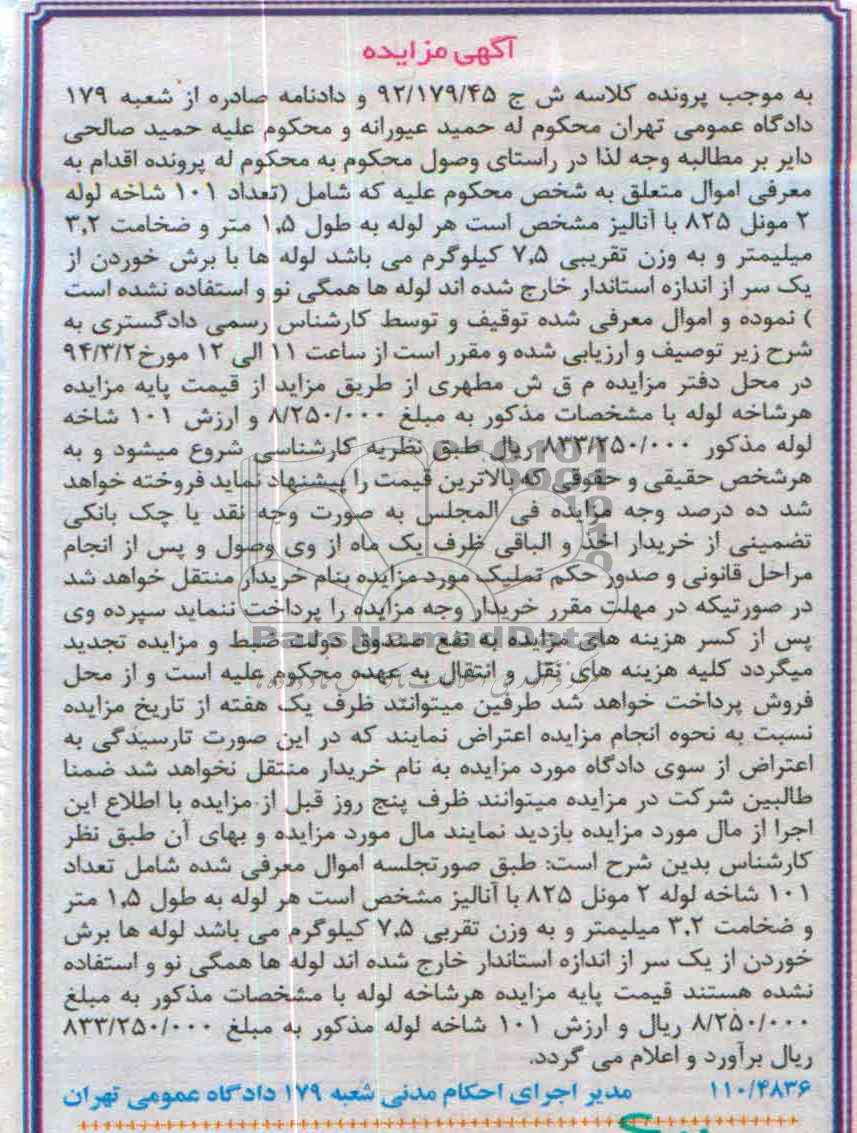 آگهی مزایده
به موجب پرونده کلاسه ش ج ۹۲/۱۷۹/۴۵ و دادنامه صادره از شعبه ۱۷۹
دادگاه عمومی تهران محکوم له حمید عیورانه و محکوم علیه حمید صالحی
دایر بر مطالبه وجه لذا در راستای وصول محکوم به محکوم له پرونده اقدام به
معرفی اموال متعلق به شخص محکوم علیه که شامل (تعداد ۱۰۱ شاخه لوله
۲ مونل ۸۲۵ با آنالیز مشخص است هر لوله به طول ۱,۵ متر و ضخامت ۳,۲
میلیمتر و به وزن تقریبی ۷,۵ کیلوگرم می باشد لوله ها با برش خوردن از
یک سر از اندازه استاندار خارج شده اند لوله ها همگی نو و استفاده نشده است
) نموده و اموال معرفی شده توقیف و توسط کارشناس رسمی دادگستری به
شرح زیر توصیف و ارزیابی شده و مقرر است از ساعت ۱۱ الی ۱۲ مورخ ۹۴/۳/۲
در محل دفتر مزایده م ق ش مطهری از طریق مزاید از قیمت پایه مزایده
هرشاخه لوله با مشخصات مذکور به مبلغ ۸/۲۵۰/۰۰۰ و ارزش ۱۰۱ شاخه
لوله مذکور ۸۳۳/۲۵۰/۰۰۰ ریال طبق نظریه کارشناسی شروع میشود و به
هرشخص حقیقی و حقوقی که بالاترین قیمت را پیشنهاد نماید فروخته خواهد
شد ده درصد وجه مزایده فی المجلس به صورت وجه نقد یا چک بانکی
تضمینی از خریدار اخذ و الباقی ظرف یک ماه از وی وصول و پس از انجام
مراحل قانونی و صدور حکم تملیک مورد مزایده بنام خریدار منتقل خواهد شد
در صورتیکه در مهلت مقرر خریدار وجه مزایده را پرداخت ننماید سپرده وی
پس از کسر هزینه های مزایده به نفع صندوق دولت ضبط و مزایده تجدید
ParsNamadData
میگردد کلیه هزینه های نقل و انتقال به عهده محکوم علیه است و از محل
فروش پرداخت خواهد شد طرفین میتوانند ظرف یک هفته از تاریخ مزایده
نسبت به نحوه انجام مزایده اعتراض نمایند که در این صورت تارسیدگی به
اعتراض از سوی دادگاه مورد مزایده به نام خریدار منتقل نخواهد شد ضمنا
طالبین شرکت در مزایده میتوانند ظرف پنج روز قبل از مزایده با اطلاع این
اجرا از مال مورد مزایده بازدید نمایند مال مورد مزایده و بهای آن طبق نظر
کارشناس بدین شرح است: طبق صورتجلسه اموال معرفی شده شامل تعداد
۱۰۱ شاخه لوله ۲ مونل ۸۲۵ با آنالیز مشخص است هر لوله به طول ۱,۵ متر
و ضخامت ۳,۲ میلیمتر و به وزن تقربی ۷,۵ کیلوگرم می باشد لوله ها برش
خوردن از یک سر از اندازه استاندار خارج شده اند لوله ها همگی نو و استفاده
نشده هستند قیمت پایه مزایده هرشاخه لوله با مشخصات مذکور به مبلغ
۸/۲۵۰/۰۰۰ ریال و ارزش ۱۰۱ شاخه لوله مذکور به مبلغ ۸۳۳/۲۵۰/۰۰۰
ریال برآورد و اعلام می گردد.
۱۱۰/۴۸۳۶ مدیر اجرای احکام مدنی شعبه ۱۷۹ دادگاه عمومی تهران